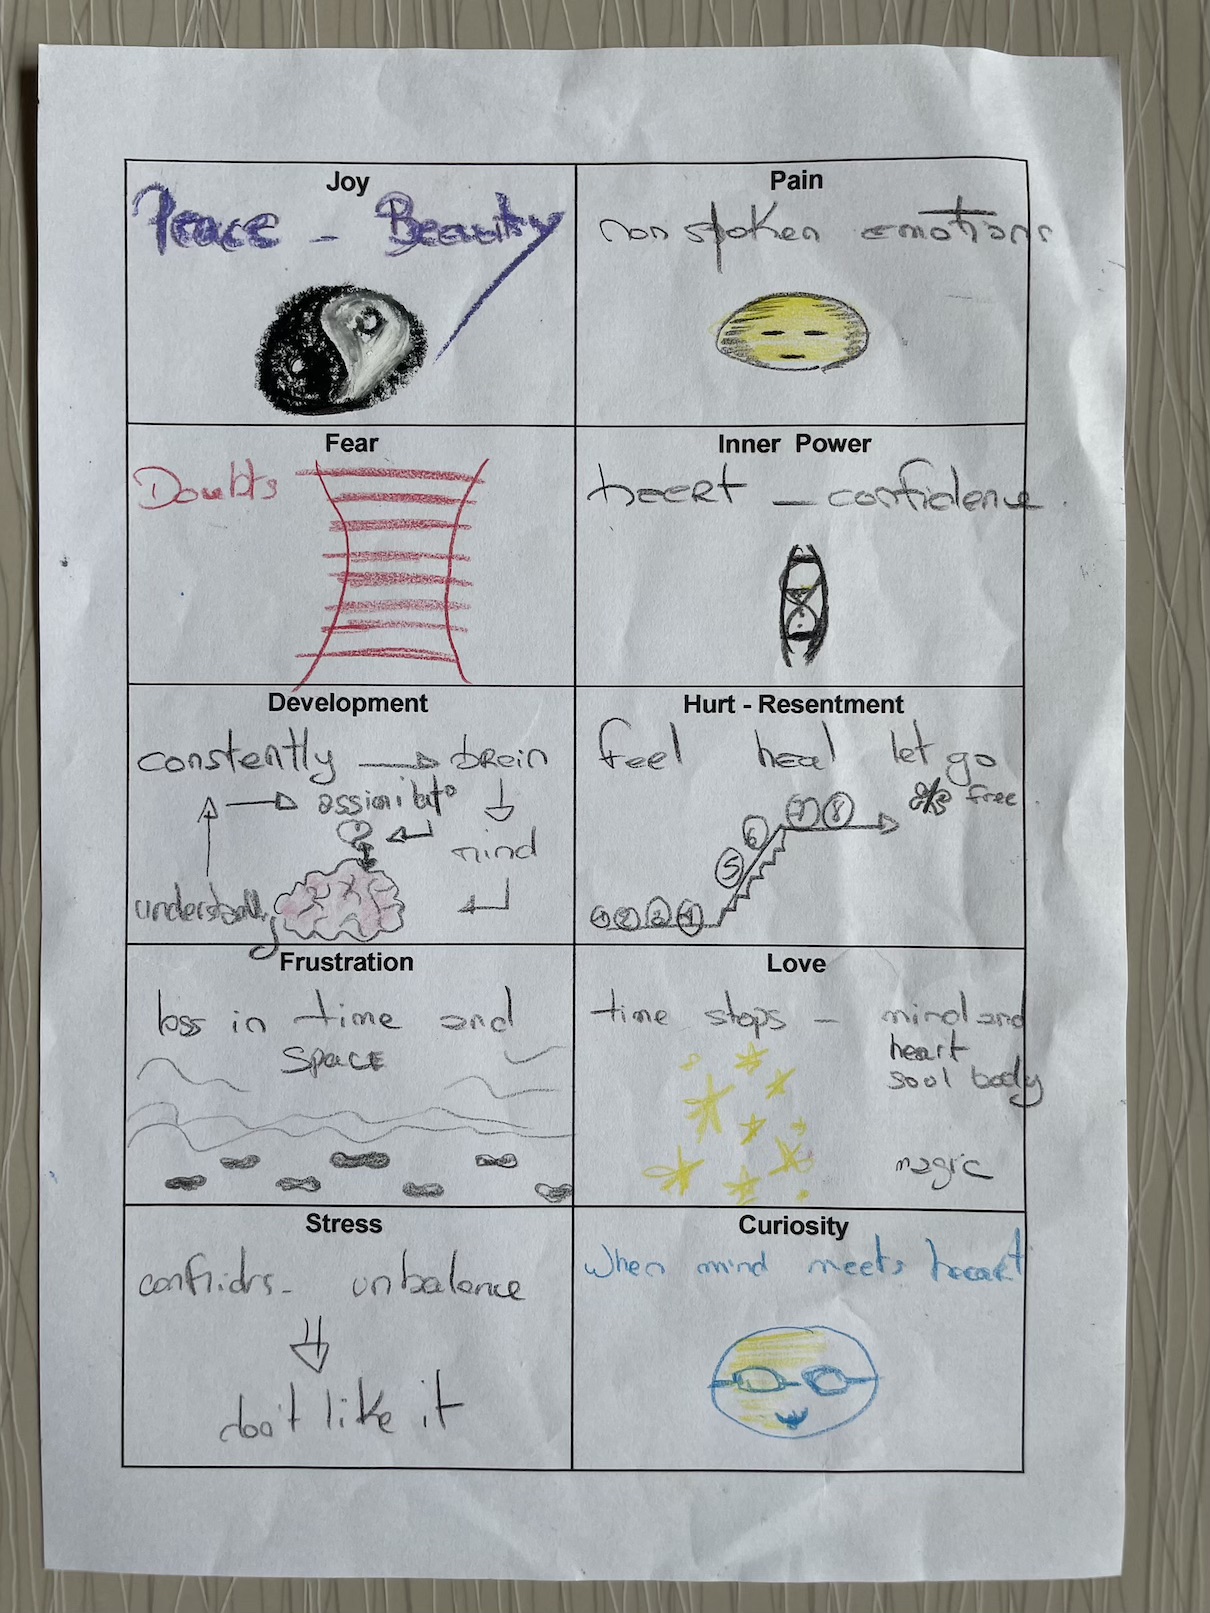 Joy
Peace - Beauty
Pain
non spoken emotions
Fear
Doubts
Inner Power
heart - confidence.
Development
constently → brein
→ assimilate
mind
understanding
Hurt - Resentment
feel heal let go
free.
1 2 3 4 5 6 7 8
Frustration
loss in time and
space
Love
time stops - mind and
heart
soul body
magic
Stress
conflicts - unbalance
don't like it
Curiosity
when mind meets heart